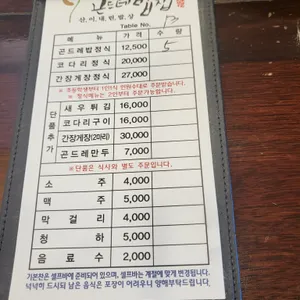 곤드레밥집
산,이,내,린,밥,상
Table No. 13
메 뉴 가 격 수 량
곤드레밥정식 12,500 5
코다리정식 20,000
간장게장정식 27,000
단품추가
새우튀김 16,000
코다리구이 16,000
간장게장(2마리) 30,000
곤드레만두 7,000
※단품은 식사와 별도 주문입니다.
소 주 4,000
맥 주 5,000
막 걸 리 4,000
청 하 5,000
음 료 수 2,000
기본찬은 셀프바에 준비되어 있으며, 셀프바는 계절에 맞게 변경됩니다.
넉넉히 드시되 남은 음식은 포장이 어려우니 양해부탁드립니다.